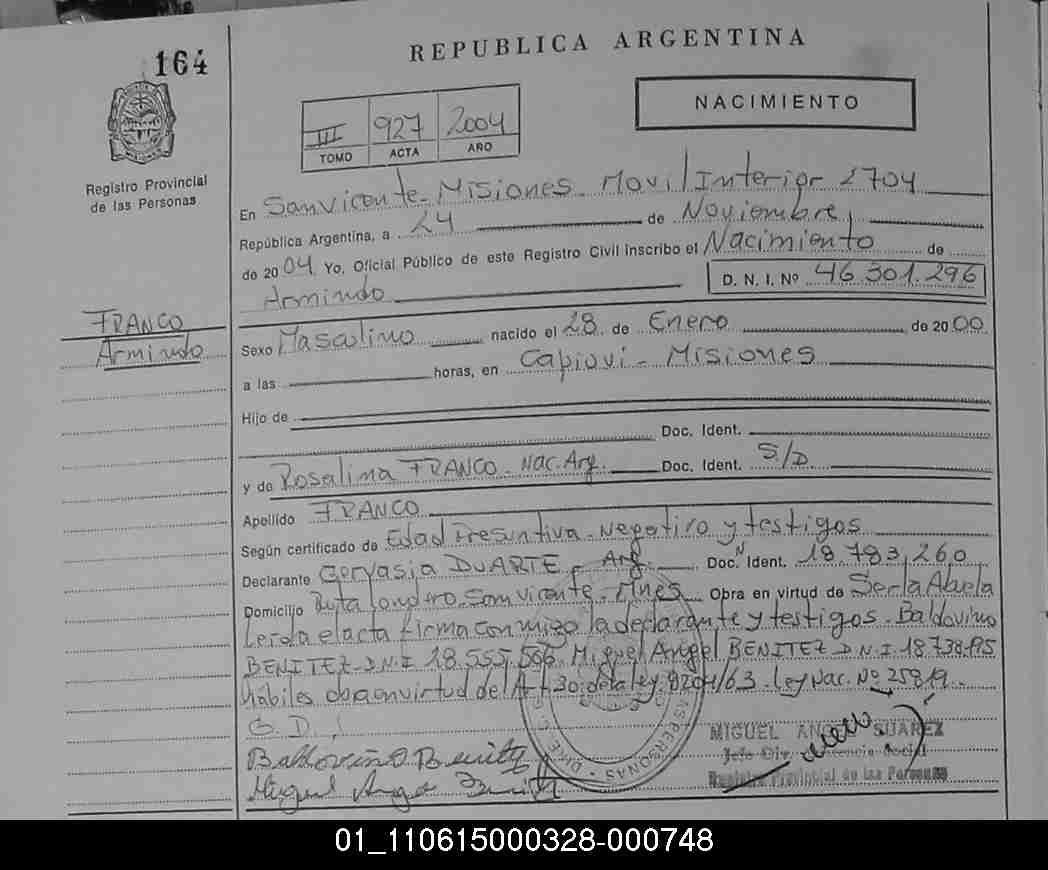 164
REPUBLICA ARGENTINA
NACIMIENTO
III 927 2004
TOMO ACTA AÑO
Registro Provincial
de las Personas
En Sanvicente - Misiones - Movil Interior 2704
República Argentina, a 24 de Noviembre,
de 2004. Yo, Oficial Público de este Registro Civil inscribo el Nacimiento de
Armindo D. N. I. Nº 46.301.296
FRANCO
Armindo
Sexo Masculino nacido el 28 de Enero de 2000
a las horas, en Capiovi - Misiones
Hijo de
Doc. Ident.
y de Rosalina FRANCO - Nac. Arg. Doc. Ident. S/D
Apellido FRANCO
Según certificado de Edad Presuntiva - Negativo y testigos
Declarante Gervasia DUARTE - Arg. Doc. Ident. 18.783.260
Domicilio Ruta Sanvicente - Mnes Obra en virtud de Ser la Abuela
Leida el acta firma conmigo la declarante y testigos - Baldovino
BENITEZ D.N.I 18.555.566 Miguel Angel BENITEZ D.N.I. 18.738.195
hábiles obra en virtud del Art 30 de la ley 8204/63 - Ley Nac. Nº 25819.
G. D.
Baldovino Benitez
Miguel Angel Benitez
PERSONAS
MIGUEL ANGEL SUAREZ
Jefe Div. Social
Registro Provincial de las Personas
01_110615000328-000748